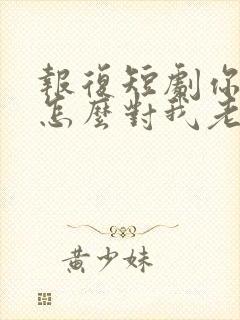 報復短劇你
怎麼對我老
黃少妹